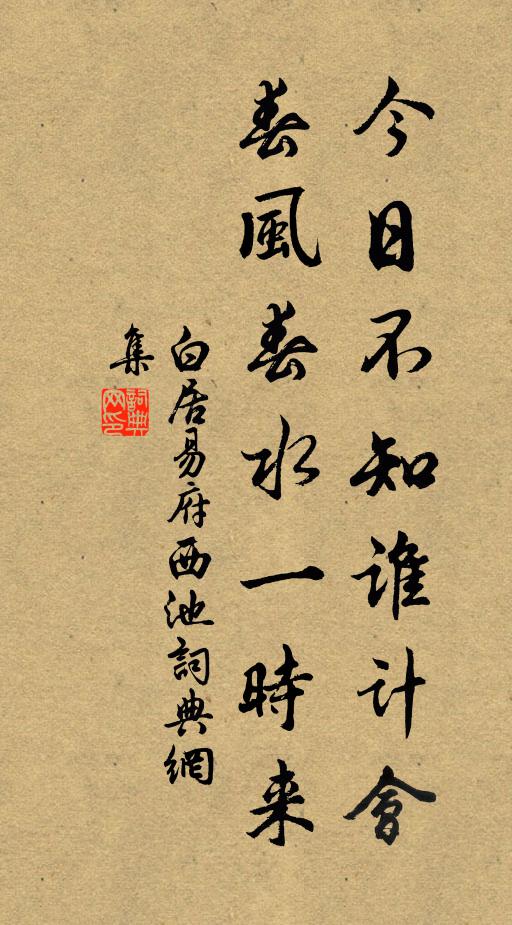 今日不知誰計會
春風春水一時来
白居易府西池詞典網
集
詞典
网印